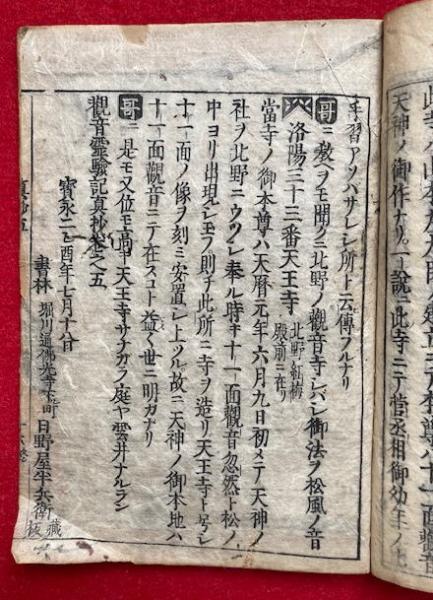 此寺ハ
天神ノ御作ナリ一説ニ此寺ニテ菅丞相御幼年ノ
手習アソハサレシ所ト云傳フルナリ
哥ニ教ヲモ聞クニ北野ノ觀音寺シバシ御法ヲ松風ノ音
洛陽三十三番天王寺 北野紅梅殿前ニ在リ
當寺ノ御本尊ハ天暦元年六月九日初メテ天神ノ
社ヲ北野ニウツシ奉ル時キ十一面觀音忽然ト松ノ
中ヨリ出現シ玉フ則チ此所ニ寺ヲ造リ天王寺ト号シ
十一面ノ像ヲ刻ミ安置シ上ツル故ニ天神ノ御本地ハ
十一面觀音ニテ在スコト益〱世ニ明カナリ
哥ニ是モ又位モ高キ天王寺サナガラ庭ヤ雲井ナルラン
觀音靈驗記真抄巻之五
寳永二乙酉年七月十八日
書林 堀川通佛光寺下町 日野屋半兵衛 藏板